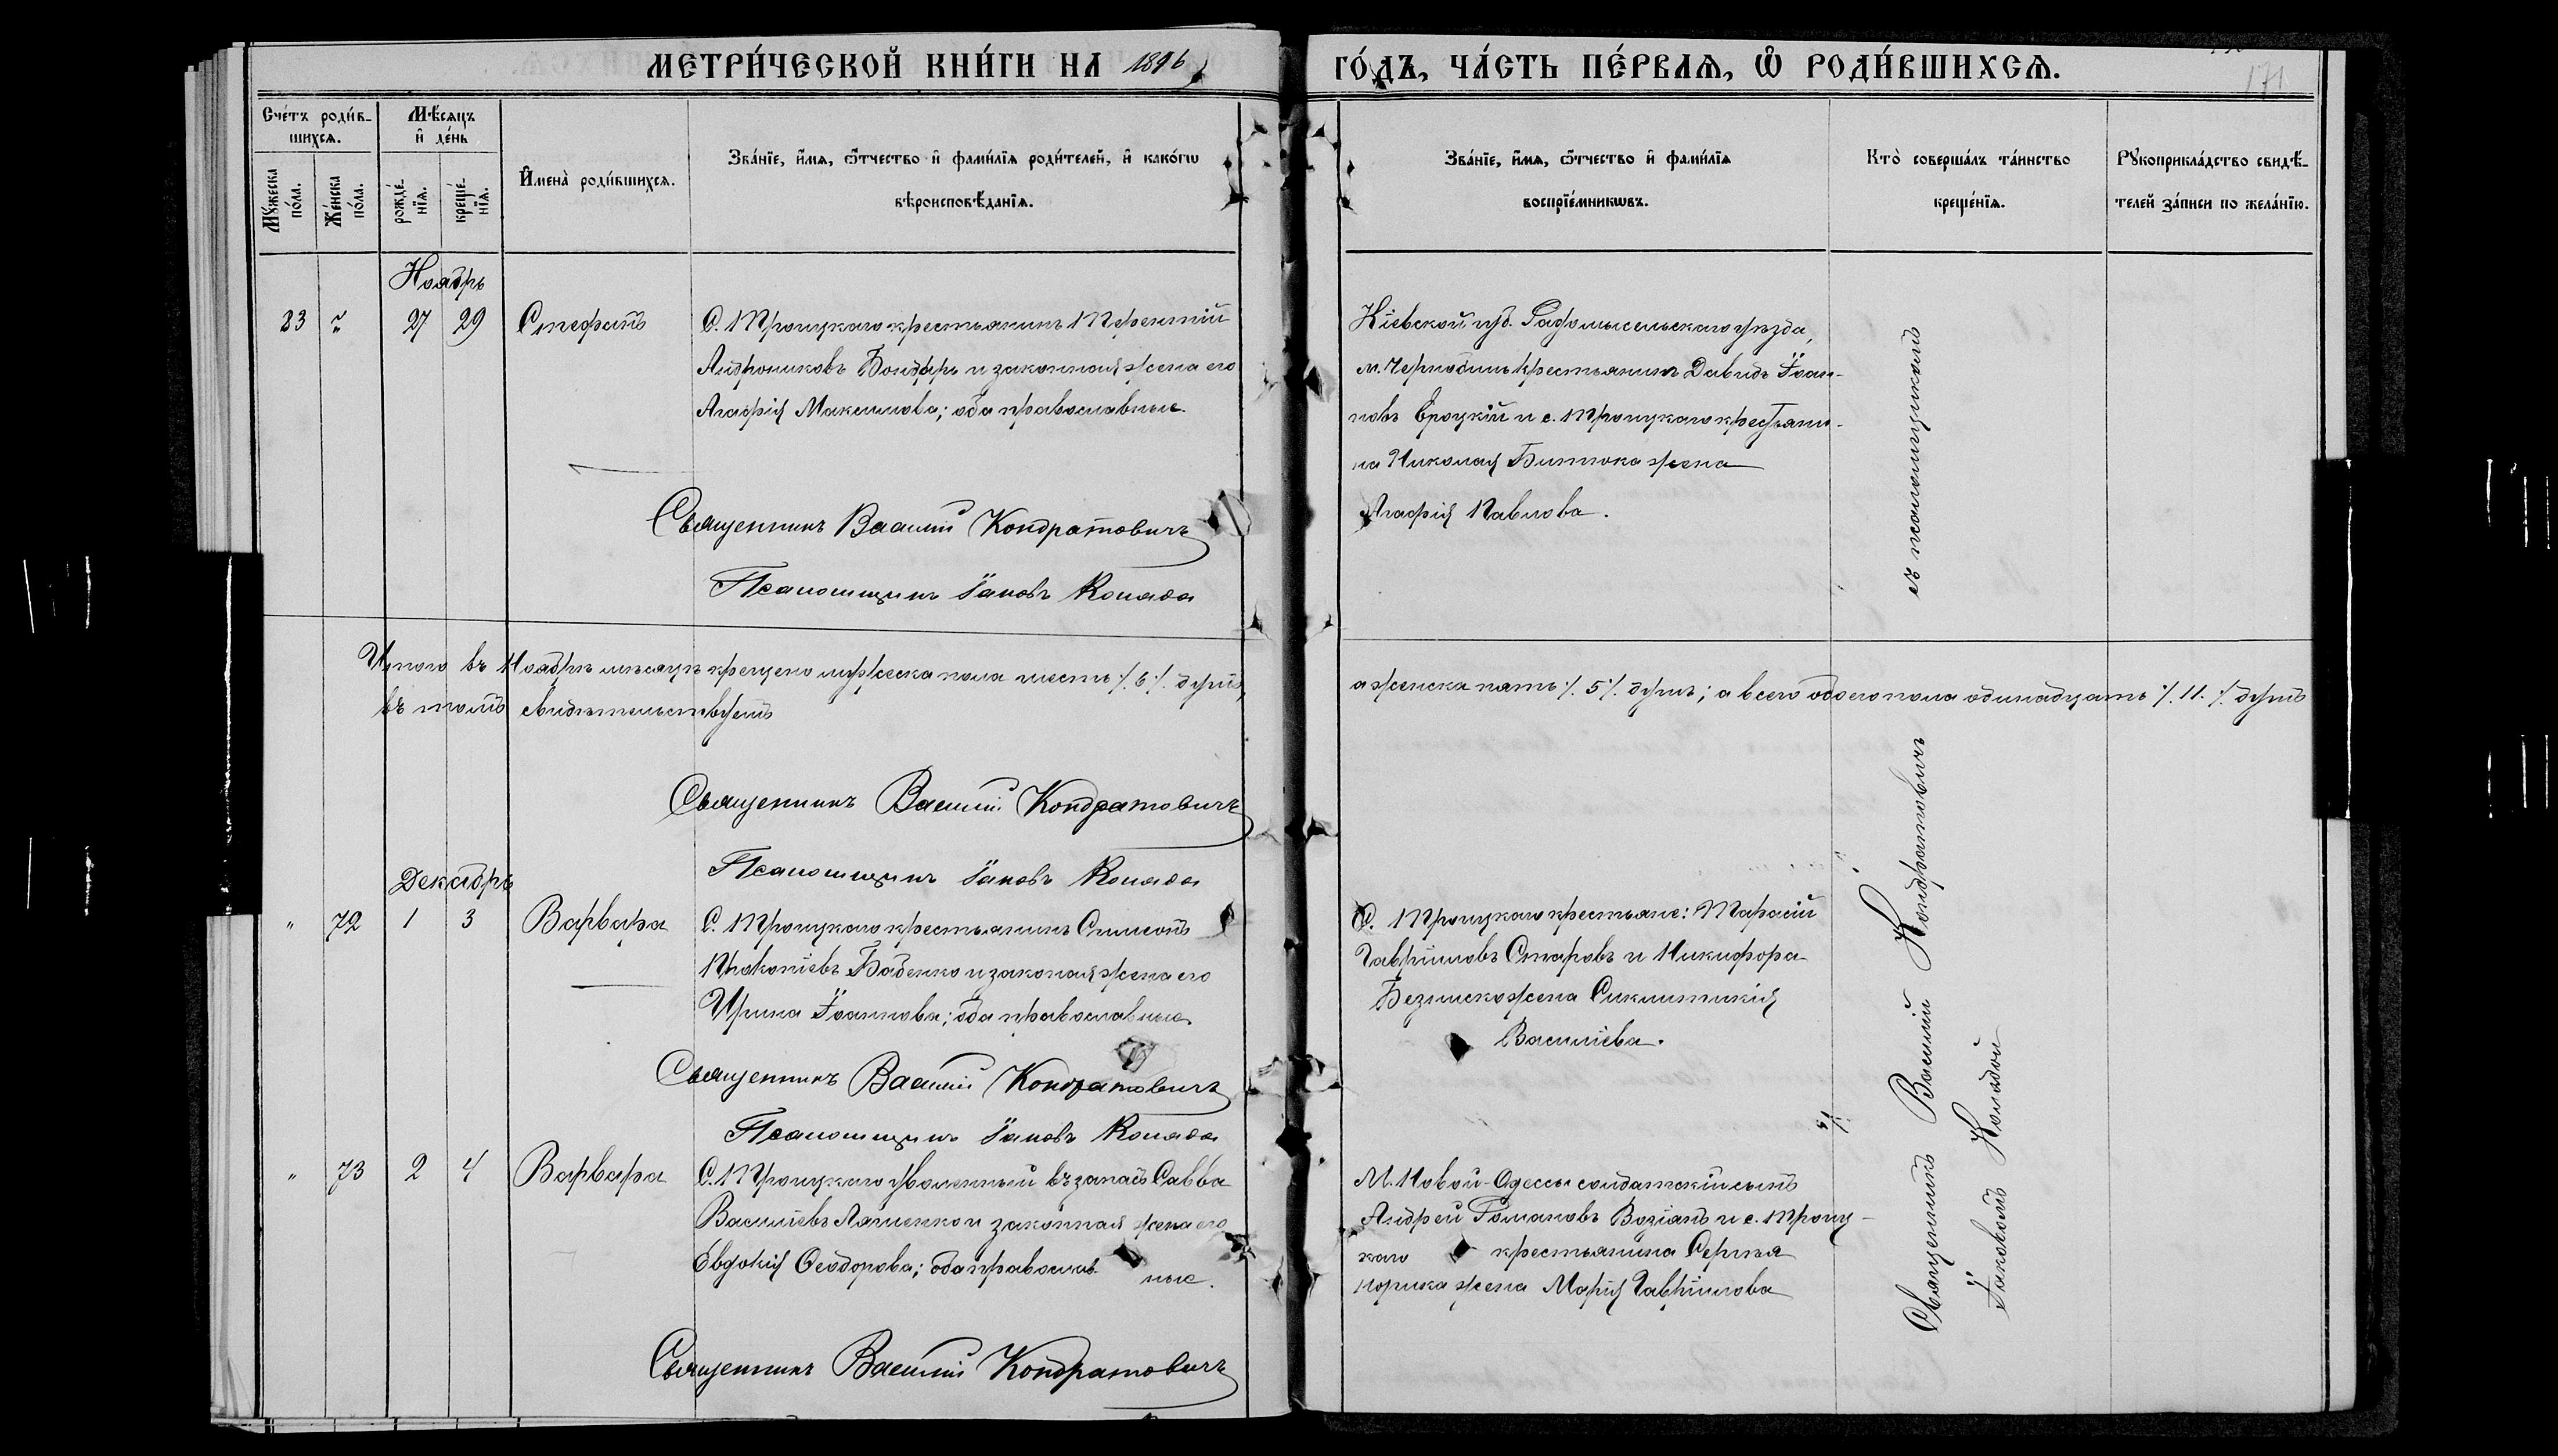 МЕТРИ́ЧЕСКОЙ КНИ́ГИ НА 1896
ГО́ДЪ, ЧА́СТЬ ПЕ́РВАЯ, Ѡ РОДИ́ВШИХСЯ.
171
Сче́тъ роди́в-
шихся.
Мѣ́сяцъ
и҆ де́нь
Мꙋ́жеска
по́ла.
Же́нска
по́ла.
рожде́-
нїя.
креще́-
нїя.
И҆мена̀ роди́вшихся.
Зва́нїе, и҆́мя, ѻ҆́тчество и҆ фами́лїя роди́телей, и҆ како́гѡ
вѣроисповѣ́данїя.
Зва́нїе, и҆́мя, ѻ҆́тчество и҆ фами́лїя
воспрїе́мникѡвъ.
Кто̀ соверша́лъ та́инство
креще́нїя.
Рꙋкоприкла́дство свидѣ́-
телей за́писи по жела́нїю.
Ноябрь
23 " 27 29 Стефанъ
С. Троицкаго крестьянинъ Терентій
Андрониковъ Бондарь и законная жена его
Агафія Максимова; оба православные.
Священникъ Василій Кондратовичъ
Псаломщикъ Іаковъ Колада
Кіевской губ. Радомысельскаго уѣзда,
м. Чернобыль крестьянинъ Давидъ Іоан-
новъ Троцкій и с. Троицкаго крестьяни-
на Николая Битюка жена
Агафія Павлова.
Итого въ Ноябрѣ мѣсяцѣ крещено мужеска пола шесть ٪ 6 ٪ душъ,
а женска пять ٪ 5 ٪ душъ; а всего обоего пола одинадцать ٪ 11. ٪ душъ
въ томъ свидѣтельствуемъ
Священникъ Василій Кондратовичъ
Псаломщикъ Іаковъ Колада
Декабрь
" 72 1 3 Варвара
С. Троицкаго крестьянинъ Симеонъ
Прокопіевъ Бабенко и законая жена его
Ирина Іоаннова; оба православные.
Священникъ Василій Кондратовичъ
Псаломщикъ Іаковъ Колада
С. Троицкаго крестьяне: Тарасій
Гавріиловъ Старовъ и Никифора
жена Сиклитикія
Василіева.
" 73 2 4 Варвара
С. Троицкаго уволенный въ запасъ Савва
Василіевъ Ляшенко и законная жена его
Евдокія Ѳеодорова; оба православ
ные.
Священникъ Василій Кондратовичъ
М. Новой-Одессы солдатскій сынъ
Андрей Романовъ Возіанъ и с. Троиц-
каго крестьянина Сергѣя
жена Марія Гавріилова
Священникъ Василій Кондратовичъ
съ псаломщикомъ
Іаковомъ Коладой